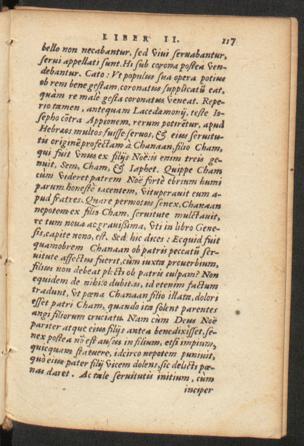 LIBER II. 117
bello non necabantur, sed vivi seruabantur,
serui appellati sunt. Hi sub corona postea ven-
debantur. Cato: Vt populus sua opera potius
ob rem bene gestam, coronatus supplicatũ eat,
quàm re malè gesta coronatus veneat. Repe-
rio tamen, antequam Lacedæmonij, teste Io-
sepho cõtra Appionem, rerum potirẽtur, apud
Hebræos multos fuisse seruos, & eius seruitu-
tis originẽ profectam à Chanaan, filio Cham,
qui fuit vnus ex filijs Noë: is enim treis ge-
nuit, Sem, Cham, & Iaphet. Quippe Cham
cùm videret patrem Noë fortè ebrium humi
parum honestè iacentem, vituperauit eum a-
pud fratres. Quare permotus senex, Chanaan
nepotem ex filio Cham, seruitute mulctauit,
re tum noua ac grauissima, vti in libro Gene-
sis, capite nono, est. Sed hic dices: Ecquid fuit
quamobrem Chanaan ob patris peccatũ ser-
uitute affectus fuerit, cùm iuxta prouerbium,
filius non debeat plecti ob patris culpam? Non
equidem de nihilo dubitas, id etenim factum
tradunt, vt pœna Chanaan filio illata, dolori
esset patri Cham, quando ita solent parentes
angi filiorum cruciatu. Nam cùm Deus Noë
pariter atque eius filijs antea benedixisset, se-
nex postea nõ est ausus in filium, etsi impium,
quicquam statuere, idcirco nepotem puniuit,
quò eius pater filij vicem dolens, sic delicti pœ-
nas daret. Ac tale seruitutis initium, cum
inciper